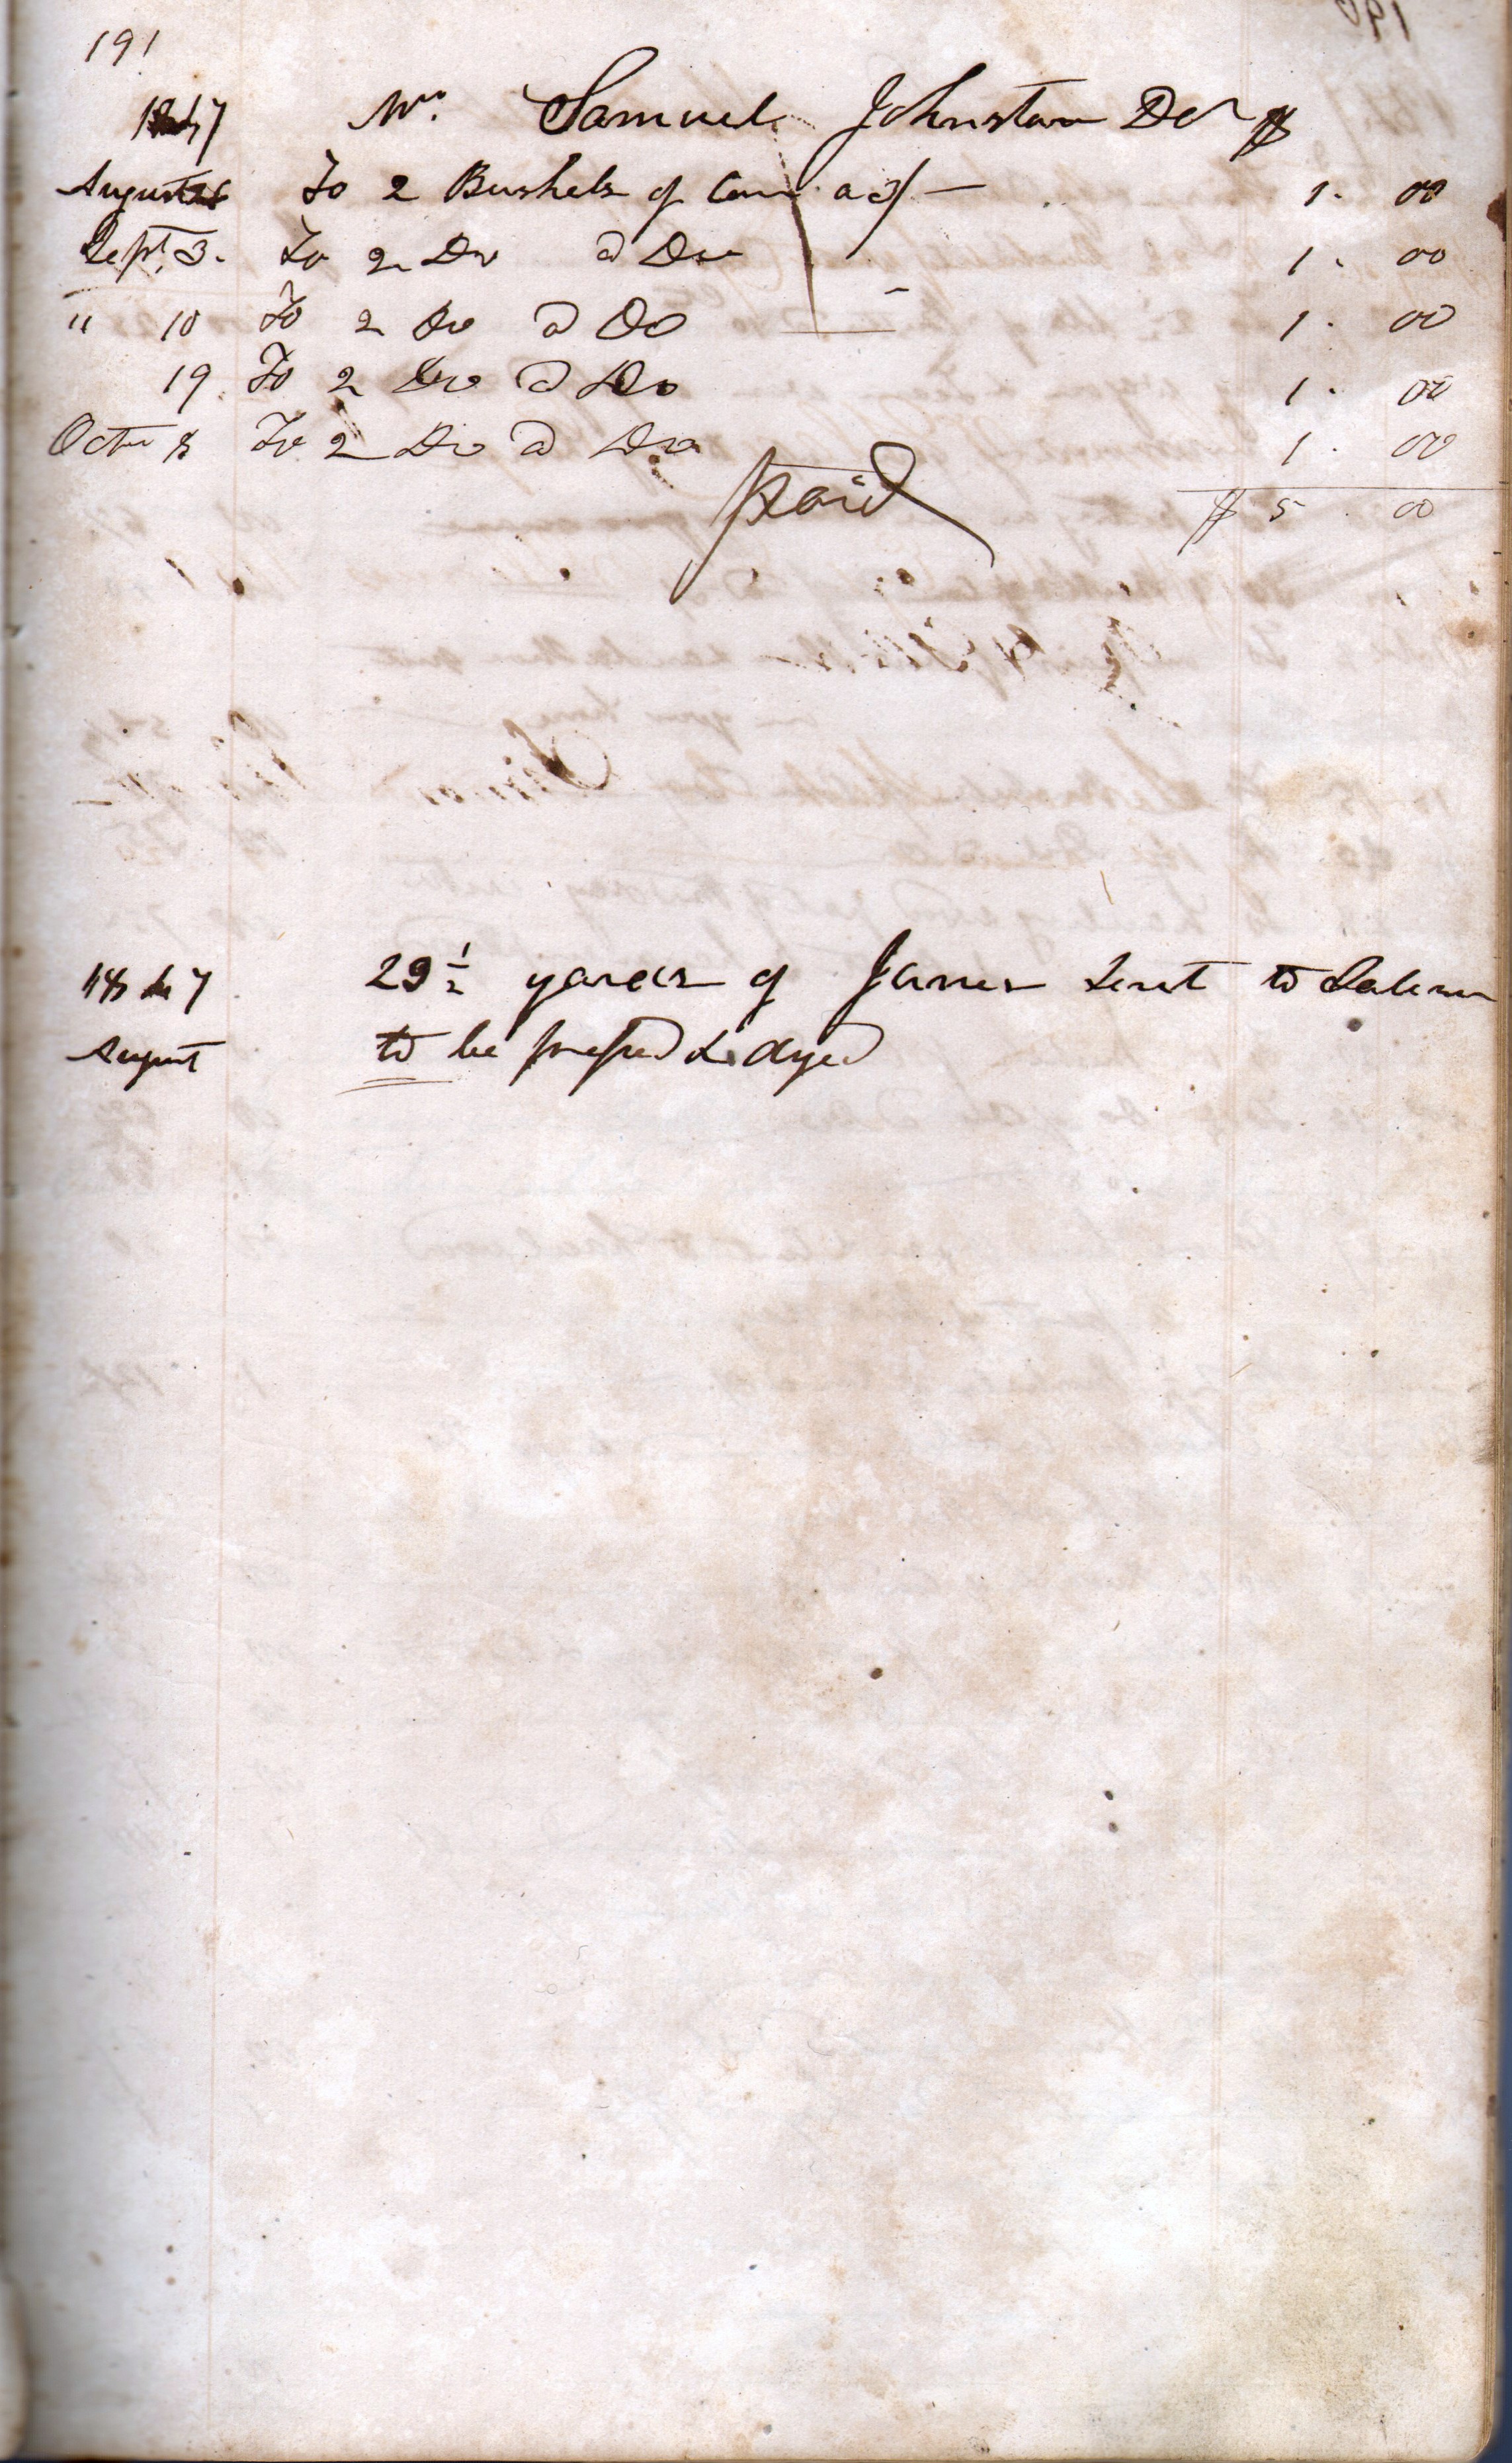 191
1847 Mr. Samuel Johnston Dr $
August 26 To 2 Bushels of Corn a 3/ — 1. 00
Sept. 3. To 2 Do a Do 1. 00
" 10 To 2 Do a Do 1. 00
19 To 2 Do a Do 1. 00
Octr 8 To 2 Do a Do 1. 00
Paid $ 5. 00
1847 29 1/2 yards of Janes Sent to Salem
August to be pressed & dyed